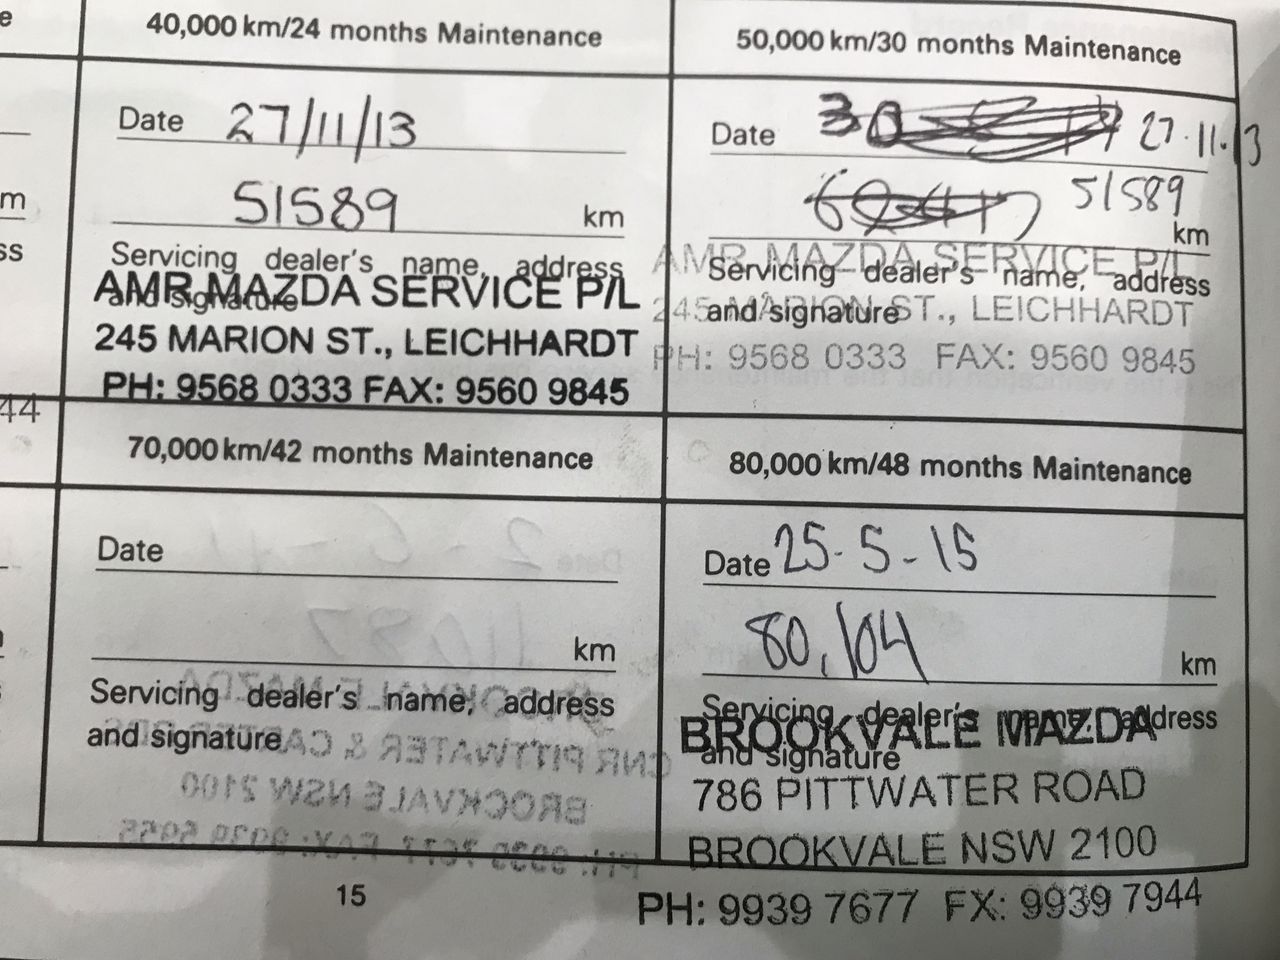 e
40,000 km/24 months Maintenance
50,000 km/30 months Maintenance
Date 27/11/13
Date 30 27.11.13
m
51589 km
51589
km
ss
Servicing dealer's name, address
and signature
AMR MAZDA SERVICE P/L
245 MARION ST., LEICHHARDT
PH: 9568 0333 FAX: 9560 9845
AMR MAZDA SERVICE P/L
Servicing dealer's name, address
and signature
245 MARION ST., LEICHHARDT
PH: 9568 0333 FAX: 9560 9845
44
70,000 km/42 months Maintenance
80,000 km/48 months Maintenance
Date
Date 25-5-15
km
80,104 km
Servicing dealer's name, address
and signature
Servicing dealer's name, address
and signature
BROOKVALE MAZDA
786 PITTWATER ROAD
BROOKVALE NSW 2100
PH: 9939 7677 FX: 9939 7944
15